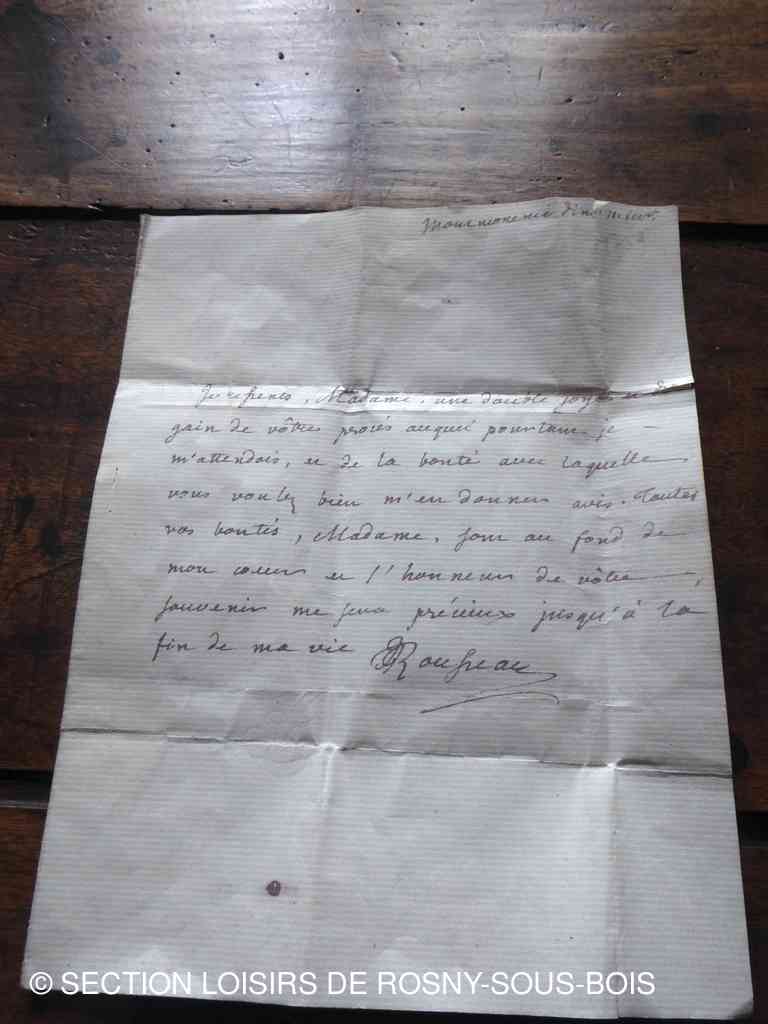 Je ressens, Madame, une double joye
gain de vôtre procés auquel pourtant je
m'attendois, et de la bonté avec laquelle
vous voulez bien m'en donner avis. Toutes
vos bontés, Madame, sont au fond de
mon coeur et l'honneur de vôtre
souvenir me sera précieux jusqu'à la
fin de ma vie Rousseau
© SECTION LOISIRS DE ROSNY-SOUS-BOIS